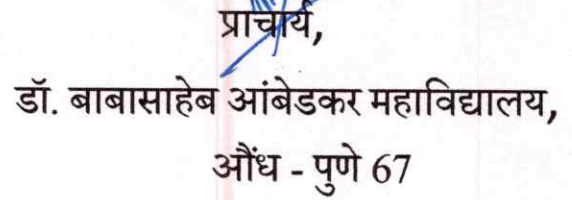 प्राचार्य,
डॉ. बाबासाहेब आंबेडकर महाविद्यालय,
औंध - पुणे 67